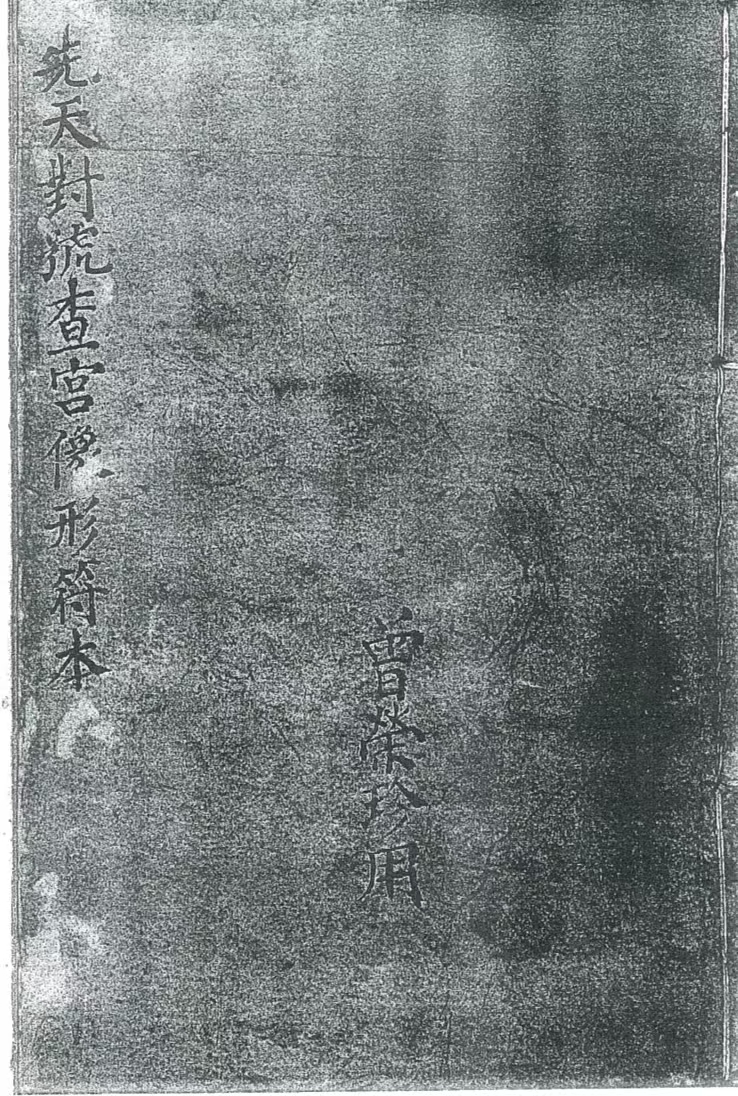 先天對號查宮像形符本
曾榮珍用